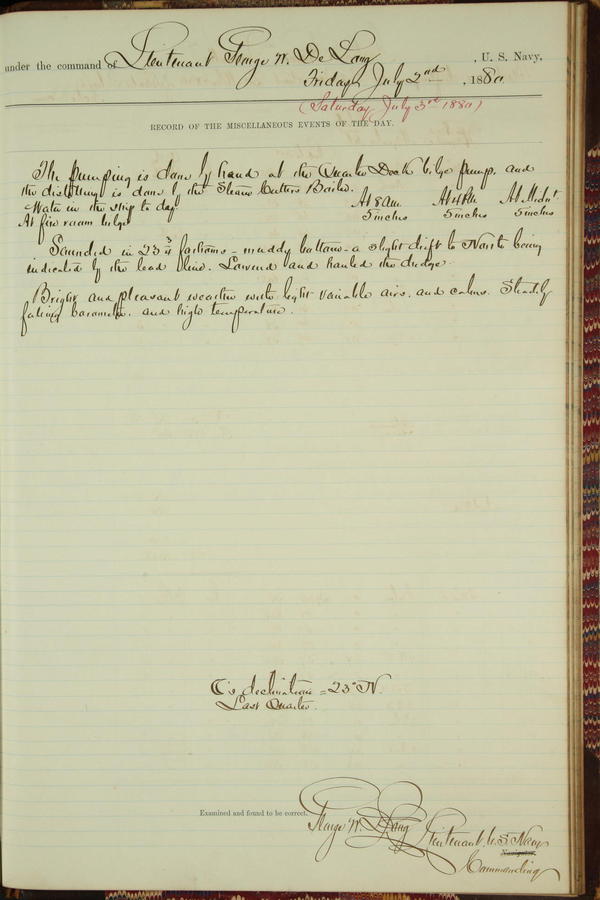 under the command of Lieutenant George W. De Long, U. S. Navy,
Friday, July 2nd, 1880
(Saturday July 3rd 1880)
RECORD OF THE MISCELLANEOUS EVENTS OF THE DAY.
The pumping is done by hand at the Quarter Deck bilge pump, and
the distilling is done by the Steam Cutters Boiler.
Water in the ship to day At 8 AM. At 4 PM. At Midnt
At fire room bilge 5 inches 5 inches 5 inches
Sounded in 23 fathoms - muddy bottom - a slight drift to North being
indicated by the lead line. Lowered and hauled the dredge.
Bright and pleasant weather with light variable airs, and calms. Steadily
falling barometer, and high temperature.
☾'s declination = 23° N
Last Quarter.
Examined and found to be correct.
George W. De Long Lieutenant U.S. Navy
Navigator.
Commanding